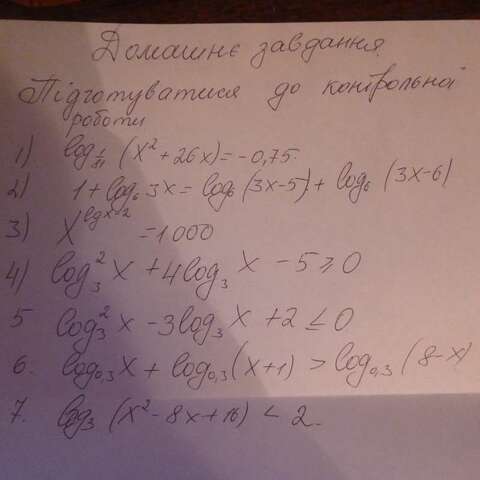 Домашнє завдання.
Підготуватися до контрольної
роботи
1) log_{1/81} (x² + 26x) = -0,75.
2) 1 + log₆ 3x = log₆ (3x-5) + log₆ (3x-6)
3) x^{lg x-2} = 1000
4) log₃² x + 4 log₃ x - 5 ≥ 0
5 log₃² x - 3 log₃ x + 2 ≤ 0
6. log₀,₃ x + log₀,₃ (x+1) > log₀,₃ (8-x)
7. log₃ (x² - 8x + 16) < 2.